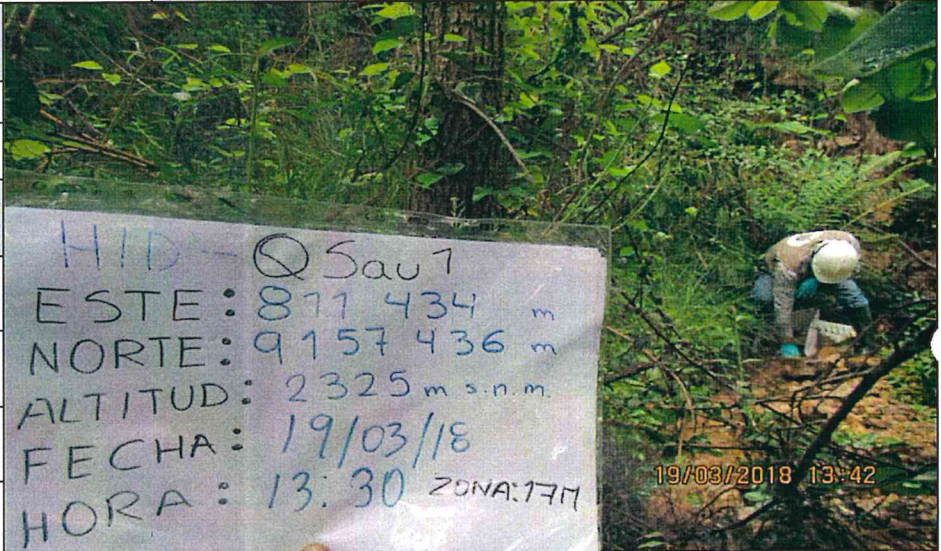 HID - QSau1
ESTE: 811 434 m
NORTE: 9157 436 m
ALTITUD: 2325 m s.n.m.
FECHA: 19/03/18
HORA: 13:30 ZONA: 17M
19/03/2018 13:42